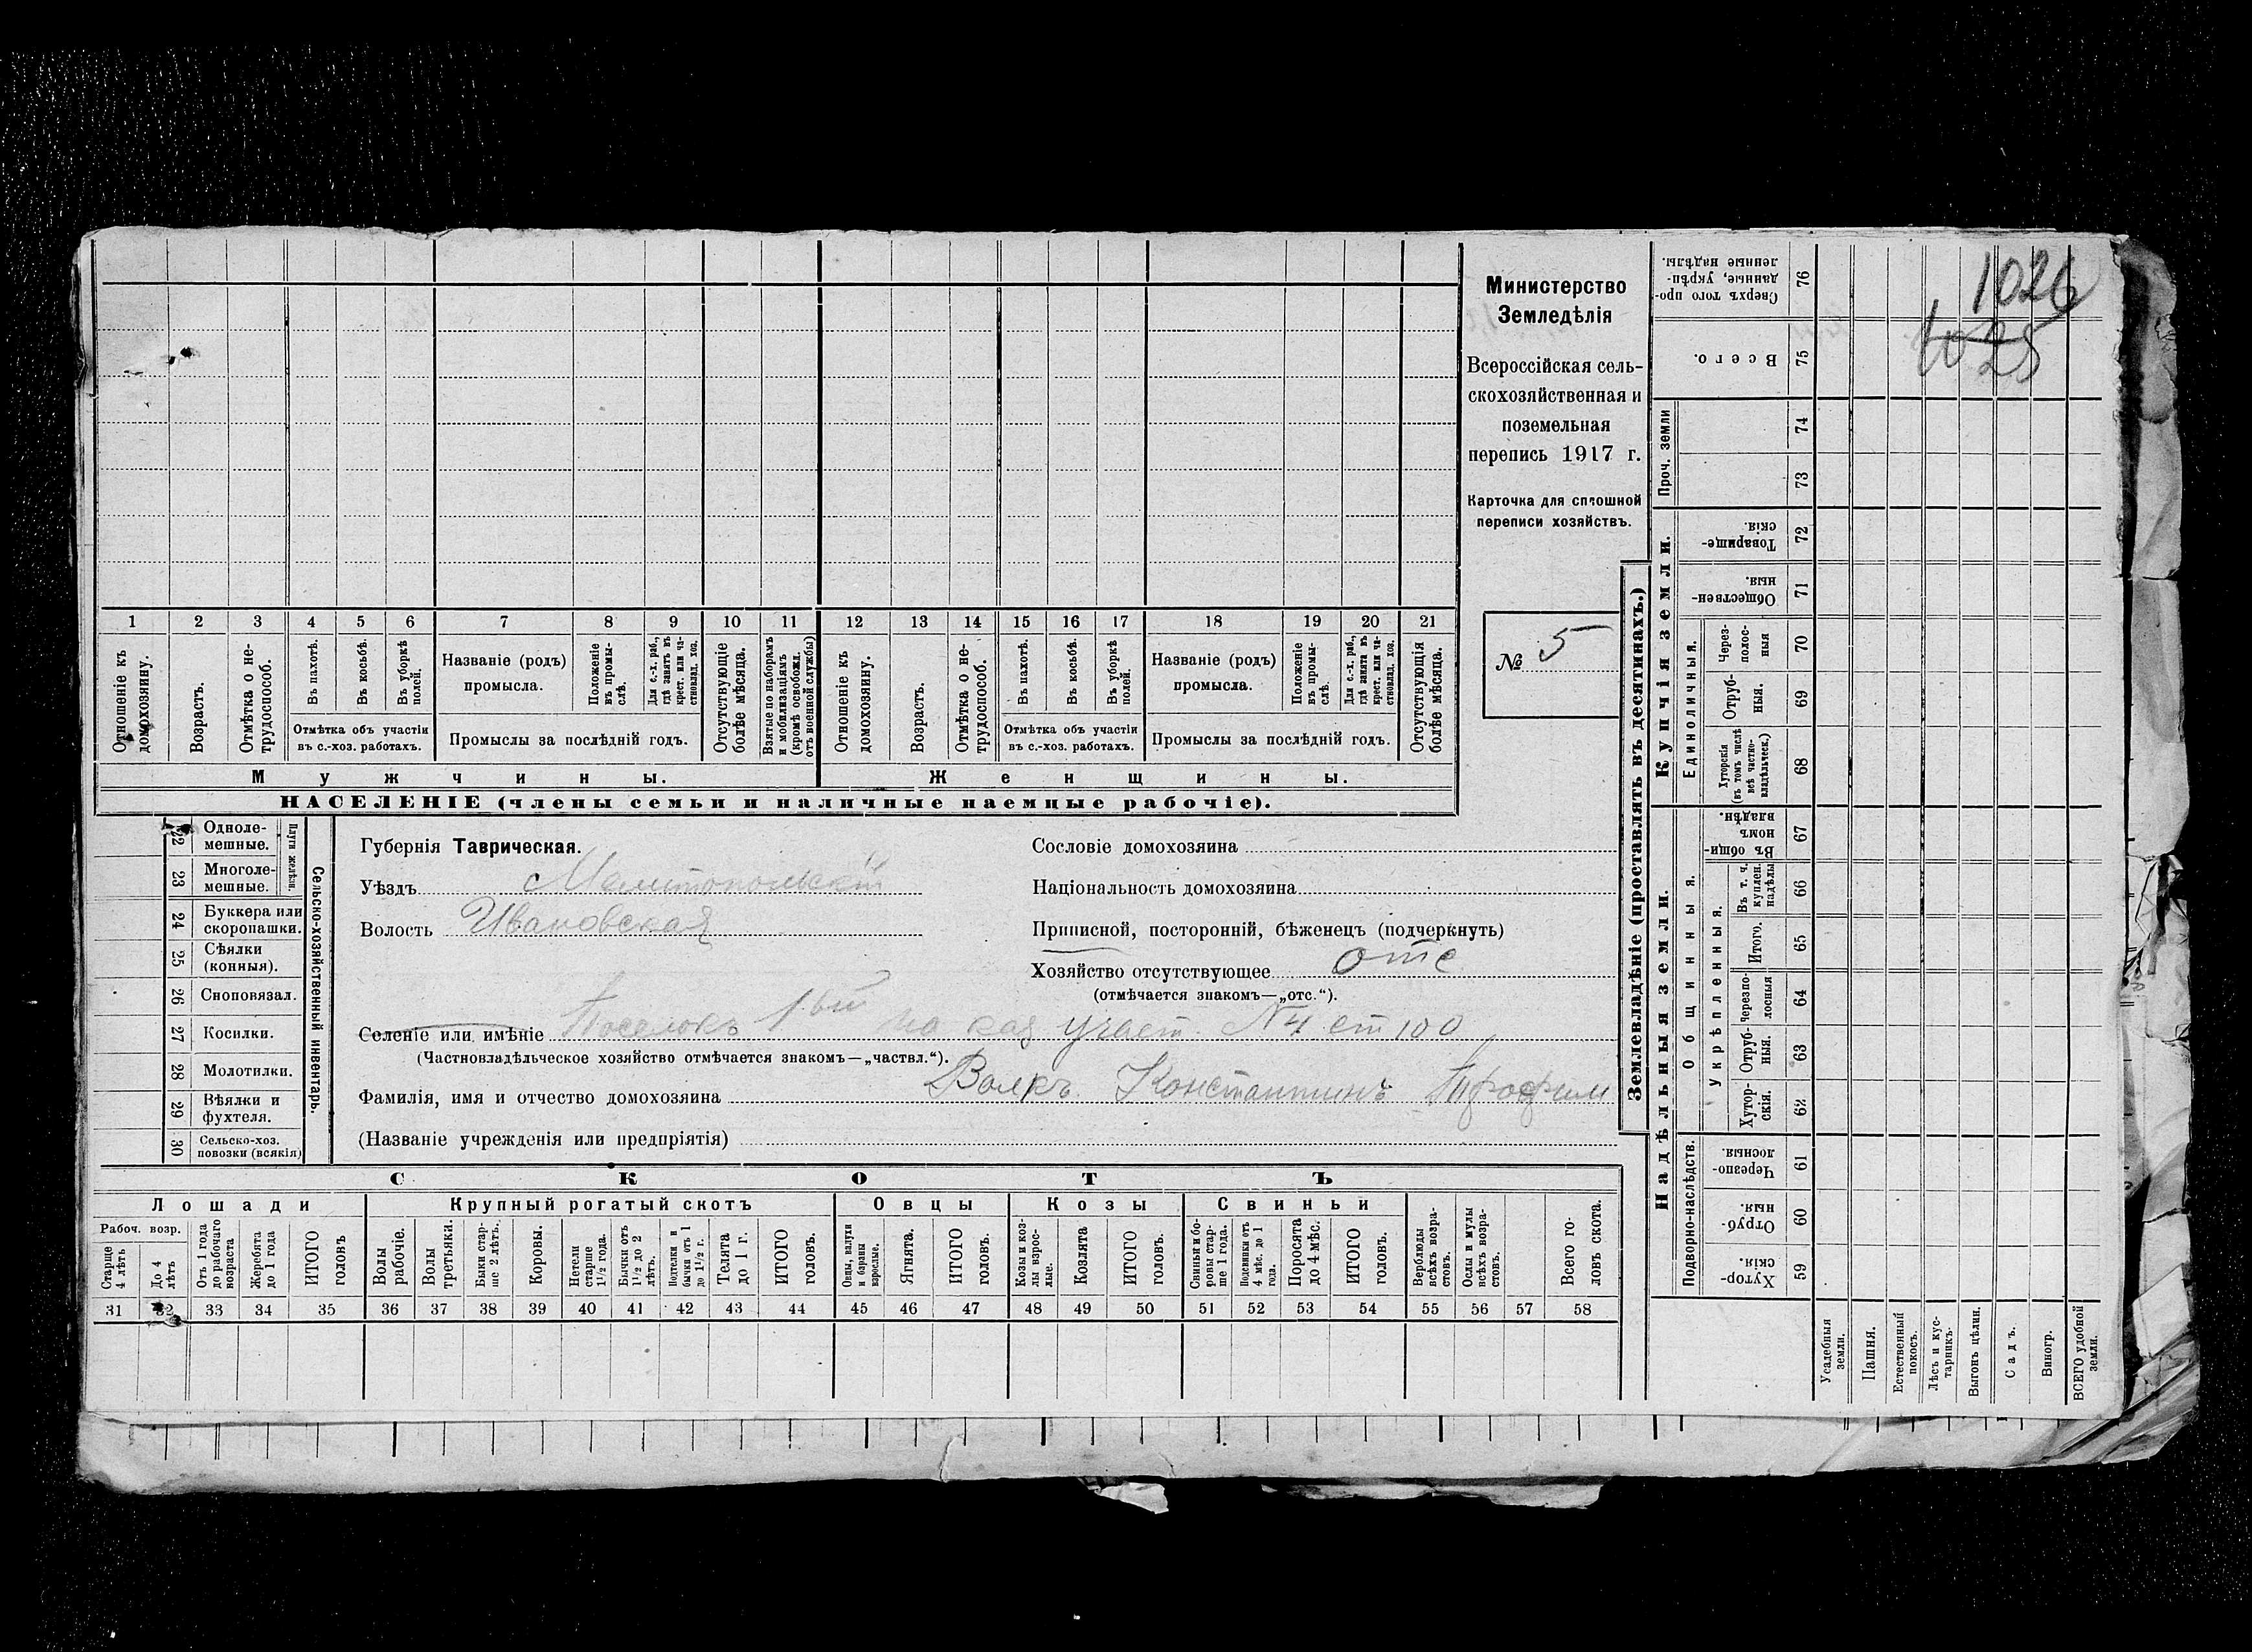 1026
1025
Министерство
Земледѣлія
Всероссійская сель-
скохозяйственная и
поземельная
перепись 1917 г.
Карточка для сплошной
переписи хозяйствъ.
№ 5
1 2 3 4 5 6 7 8 9 10 11 12 13 14 15 16 17 18 19 20 21
Отношеніе къ домохозяину.
Возрастъ.
Отмѣтка о не-трудоспособ.
Въ пахотѣ.
Въ косьбѣ.
Въ уборкѣ полей.
Отмѣтка объ участіи
въ с.-хоз. работахъ.
Названіе (родъ)
промысла.
Положеніе въ промы-слѣ.
Для с.-х. раб., гдѣ занятъ въ крест. или ча-стновлад. хоз.
Промыслы за послѣдній годъ.
Отсутствующіе болѣе мѣсяца.
Взятые по наборамъ и мобилизаціямъ (кромѣ освобожд. отъ военной службы)
Отношеніе къ домохозяину.
Возрастъ.
Отмѣтка о не-трудоспособ.
Въ пахотѣ.
Въ косьбѣ.
Въ уборкѣ полей.
Отмѣтка объ участіи
въ с.-хоз. работахъ.
Названіе (родъ)
промысла.
Положеніе въ промы-слѣ.
Для с.-х. раб., гдѣ занята въ крест. или ча-стновлад. хоз.
Промыслы за послѣдній годъ.
Отсутствующія болѣе мѣсяца.
Мужчины.
Женщины.
НАСЕЛЕНІЕ (члены семьи и наличные наемные рабочіе).
22 Одноле-мешные.
23 Многоле-мешные.
Плуги желѣзн.
24 Буккера или скоропашки.
25 Сѣялки (конныя).
26 Сноповязал.
27 Косилки.
28 Молотилки.
29 Вѣялки и фухтеля.
30 Сельско-хоз. повозки (всякія)
Сельско-хозяйственный инвентарь.
Губернія Таврическая.
Уѣздъ Мелитопольскій
Волость Ивановская
Сословіе домохозяина
Національность домохозяина
Приписной, посторонній, бѣженецъ (подчеркнуть)
Хозяйство отсутствующее отс
(отмѣчается знакомъ—„отс.“).
Селеніе или имѣніе Поселокъ 1 ый на каз участ №4 ст 100
(Частновладѣльческое хозяйство отмѣчается знакомъ—„частвл.“).
Фамилія, имя и отчество домохозяина Волкъ Константинъ Трофим
(Названіе учрежденія или предпріятія)
СКОТЪ
Лошади
Крупный рогатый скотъ
Овцы
Козы
Свиньи
Рабоч. возр.
Старше 4 лѣтъ
До 4 лѣтъ
Отъ 1 года до рабочаго возраста
Жеребята до 1 года
ИТОГО головъ
Волы рабочіе.
Волы третьяки.
Быки стар-ше 2 лѣтъ.
Коровы.
Нетели старше 1½ года.
Бычки отъ 1½ до 2 лѣтъ.
Подтелки и бычки отъ 1 до 1½ г.
Телята до 1 г.
ИТОГО головъ.
Овцы, валухи и бараны взрослые.
Ягнята.
ИТОГО головъ.
Козы и коз-лы взрос-лые.
Козлята
ИТОГО головъ.
Свиньи и бо-ровы стар-ше 1 года.
Подсвинки отъ 4 мѣс. до 1 года.
Поросята до 4 мѣс.
ИТОГО головъ.
Верблюды всѣхъ возра-стовъ.
Ослы и мулы всѣхъ возра-стовъ.
Всего го-ловъ скота.
31 32 33 34 35 36 37 38 39 40 41 42 43 44 45 46 47 48 49 50 51 52 53 54 55 56 57 58
Землевладѣніе (проставлять въ десятинахъ.)
Купчія земли.
Надѣльныя земли.
Сверхъ того про-данные, укрѣп-ленные надѣлы. 76
Всего. 75
Проч. земли
74
73
Товарище-скія. 72
Обществен-ныя. 71
Единоличныя.
Через-полос-ныя 70
Отруб-ныя. 69
Хуторскія (въ томъ числѣ всѣ частно-владѣльческ.) 68
Общинныя.
Въ общи-номъ владѣн. 67
Укрѣпленныя.
Въ т. ч. куплен. надѣлы 66
Итого. 65
Черезпо-лосныя 64
Отруб-ныя. 63
Хутор-скія. 62
Подворно-наслѣдств.
Черезпо-лосныя. 61
Отруб-ныя. 60
Хутор-скія. 59
Усадебныя земли.
Пашня.
Естественный покосъ.
Лѣсъ и кус-тарникъ.
Выгонъ цѣлин.
Садъ.
Виногр.
ВСЕГО удобной земли.